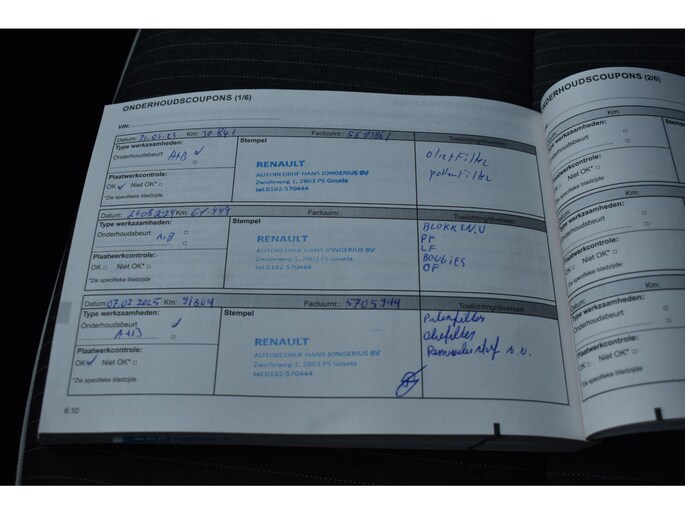 ONDERHOUDSCOUPONS (1/6)
VIN:
Datum: Km: Factuurnr.:
Type werkzaamheden:
Onderhoudsbeurt A+B
Stempel
RENAULT
AUTOBEDRIJF HANS JONGERIUS BV
Zwolleweg 1, 2803 PS Gouda
tel.0182-570444
oliefilter
pollenfilter
Plaatwerkcontrole:
OK Niet OK*
*Zie specifieke bladzijde
Datum: Km: 64.449 Factuurnr.: Toelichting/diversen
Type werkzaamheden:
Onderhoudsbeurt A+B
Stempel
RENAULT
AUTOBEDRIJF HANS JONGERIUS BV
Zwolleweg 1, 2803 PS Gouda
tel.0182-570444
BLOKKEN.V
PF
LF
BOUGIES
OF
Plaatwerkcontrole:
OK Niet OK*
*Zie specifieke bladzijde
Datum: 07.02.2025 Km: 91804 Factuurnr.: 5705944 Toelichting/diversen
Type werkzaamheden:
Onderhoudsbeurt
A+B
Stempel
RENAULT
AUTOBEDRIJF HANS JONGERIUS BV
Zwolleweg 1, 2803 PS Gouda
tel.0182-570444
Plaatwerkcontrole:
OK Niet OK*
*Zie specifieke bladzijde
6.10
ONDERHOUDSCOUPONS (2/6)
VIN:
Datum:
Type werkzaamheden:
Onderhoudsbeurt
Plaatwerkcontrole:
OK Niet OK*
*Zie specifieke bladzijde
Datum:
Type werkzaamheden:
Onderhoudsbeurt
Plaatwerkcontrole:
OK Niet OK*
*Zie specifieke bladzijde
Datum:
Type werkzaamheden:
Onderhoudsbeurt
Plaatwerkcontrole:
OK Niet OK*
*Zie specifieke bladzijde